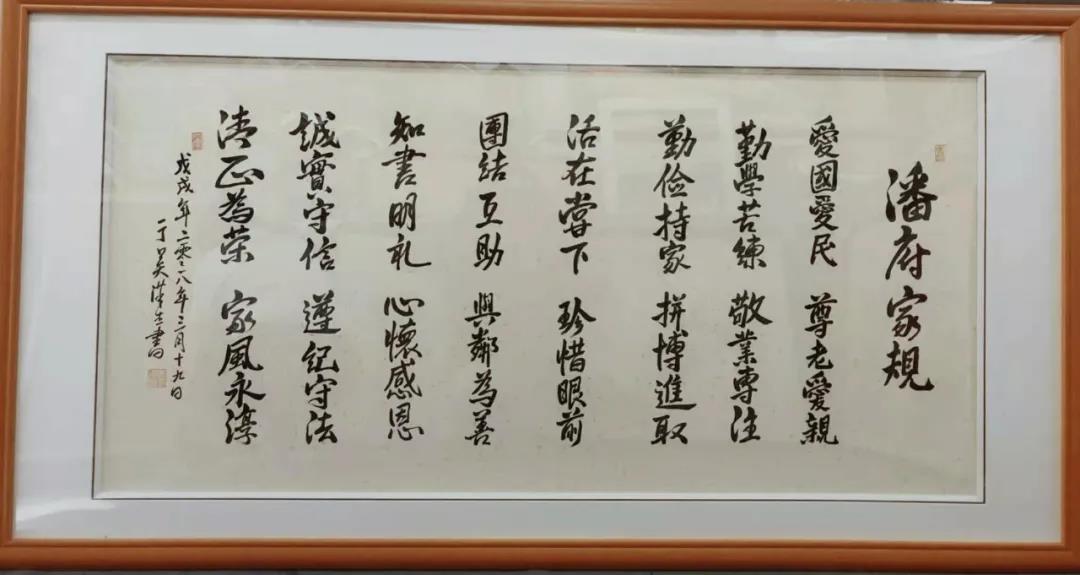 潘府家規
愛國愛民 尊老愛親
勤學苦練 敬業專注
勤俭持家 拼博進取
活在當下 珍惜眼前
團結互助 與鄰為善
知書明礼 心懷感恩
誠實守信 遵紀守法
清正為荣 家風永淳
戊戌年二零一八年三月十九日